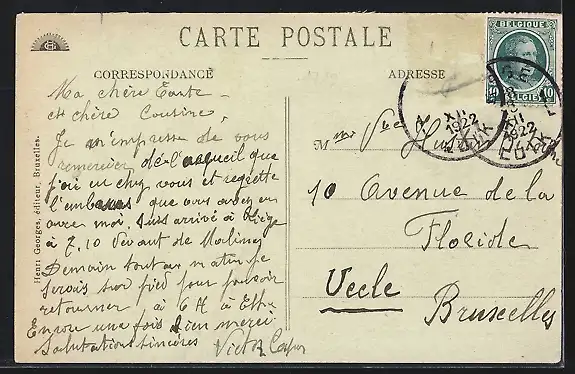 CARTE POSTALE
CORRESPONDANCE
ADRESSE
Ma chère Tante
et chère Cousine,
Je m'empresse de vous
remercier de l'accueil que
j'ai eu chez vous et regrette
l'embarras que vous avez eu
avec moi. Suis arrivé à Liège
à 7.10 devant de Malines
Demain tout au matin je
serais sur pied pour pouvoir
retourner à 6 H à
Encore une fois bien merci
Salutations sincères
Victor
Henri Georges, éditeur, Bruxelles.
BELGIQUE
10 BELGIË 10
XII
1922
XII
1922
Mme Vve
10 Avenue de la
Floride
Uccle
Bruxelles